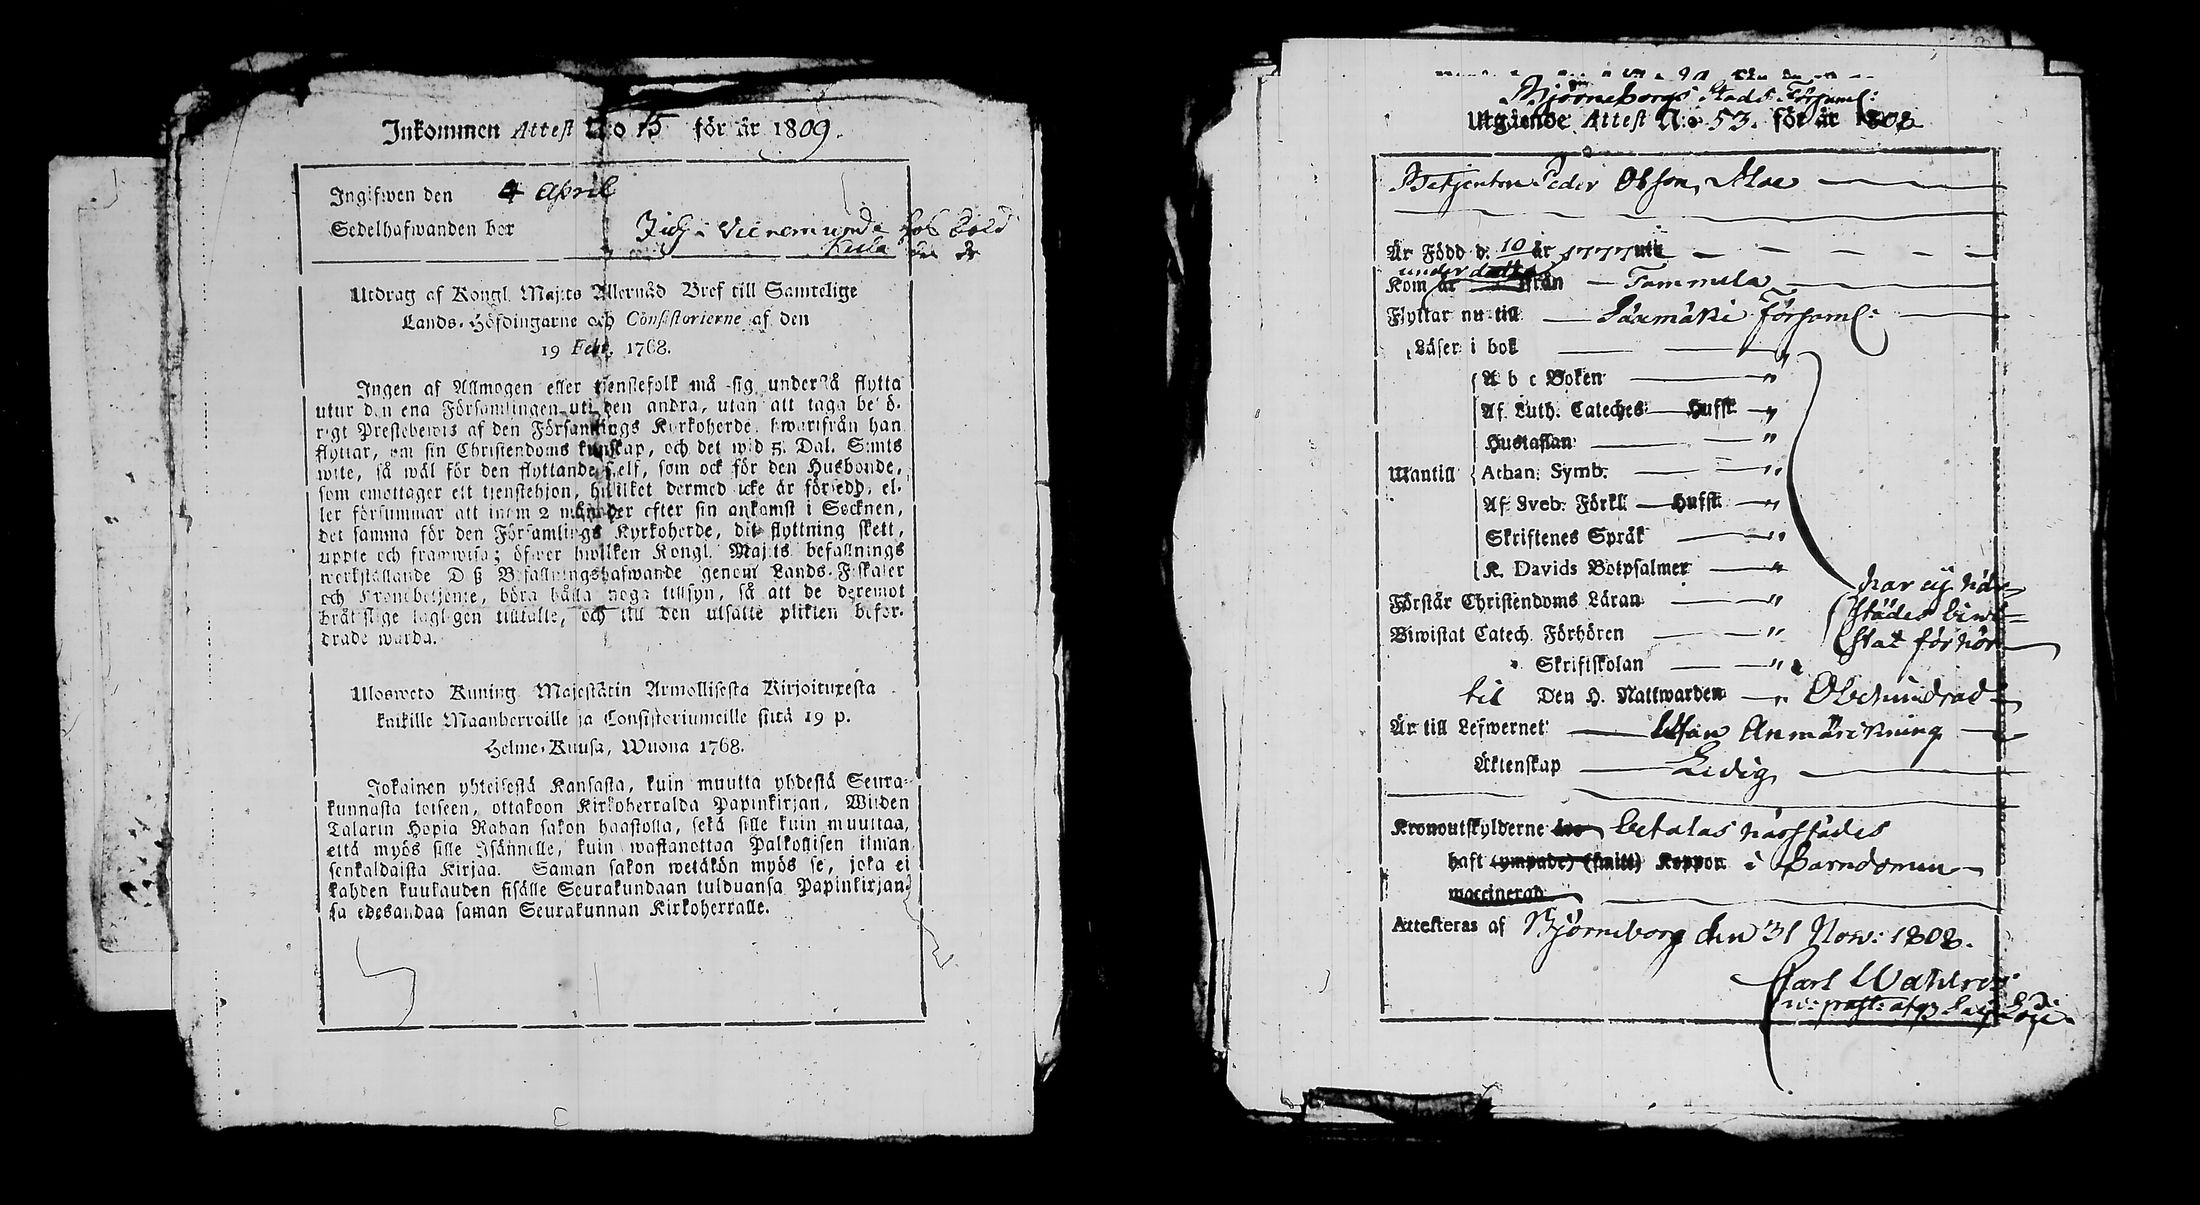 Inkommen Attest N:o 15 för år 1809.
Ingifwen den 4 April
Sedelhafwanden bor
Utdrag af Kongl. Maj:ts Allernåd Bref till Samtelige
Lands-Höfdingarne och Consistorierne af den
19 Febr. 1768.
Ingen af Allmogen eller tjenstefolk må sig understå flytta
utur den ena Församlingen uti den andra, utan att taga behö-
rigt Prestebewis af den Församlings Kyrkoherde, hwarifrån han
flyttar, om sin Christendoms kunskap, och det wid 5. Dal. S:mts
wite, så wäl för den flyttande sjelf, som ock för den Husbonde,
som emottager ett tjenstehjon, hwilket dermed icke är försedd, el-
ler försummar att inom 2 månader efter sin ankomst i Socknen,
det samma för den Församlings Kyrkoherde, dit flyttning skett,
uppte och framwisa; öfwer hwilken Kongl. Maj:ts befallnings
werkställande D ß Befallningshafwande genom Lands-Fiskaler
och Kronobetjente, böra hålla noga tillsyn, så att de deremot
bråtslige lagligen tilltalte, och till den utsatte plikten befor-
drade warda.
Ulosweto Kuning. Majestätin Armollisesta Kirjoituxesta
kaikille Maanherroille ja Consistoriumeille siitä 19 p.
Helme-Kuusa, Wuona 1768.
Jokainen yhteisestä Kansasta, kuin muutta yhdestä Seura-
kunnasta toiseen, ottakoon Kirkoherralda Papinkirjan, Wiiden
Talarin Hopia Rahan sakon haastolla, sekä sille kuin muuttaa,
että myös sille Isännelle, kuin wastanottaa Palkollisen ilman
senkaldaista Kirjaa. Saman sakon wetäkön myös se, joka ei
kahden kuukauden sisälle Seurakundaan tulduansa Papinkirjan-
sa edesandaa saman Seurakunnan Kirkoherralle.
Björneborgs Stads Församl:
Utgående Attest N:o 53. för år 1808
Betjenten Peder Olsson Moe
Är Född d. 10 år 1777 uti
under detta
Kom år ifrån Tammela
Flyttar nu till Sääxmäki Församl:
Läser i bok "
A b c Boken "
Af Luth. Cateches Hufst. "
Hustaflan "
Mantill Athan: Symb. "
Af Sveb. Förkl. Hufst. "
Skriftenes Språk "
K. Davids Botpsalmer "
har ej här-
Förstår Christendoms Läran "
städes biwi-
Biwistat Catech. Förhören "
stat förhör
" Skriftskolan "
til Den H. Nattwarden " Obehindrad
Är till Lefwernet Utan Anmärkning
Äktenskap Ledig
Kronoutskylderne betalas härstädes
haft (ympade) (smitt) Koppor i barndomen
waccinerad
Attesteras af Björneborg den 31 Nov: 1808.
Carl